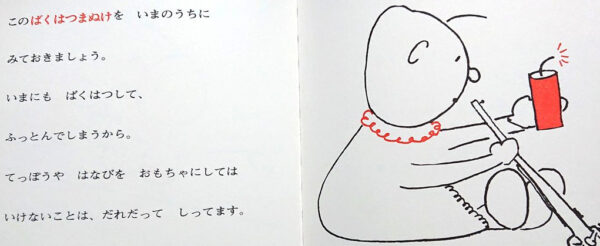 このばくはつまぬけを　いまのうちに
みておきましょう。
いまにも　ばくはつして、
ふっとんでしまうから。
てっぽうや　はなびを　おもちゃにしては
いけないことは、だれだって　しってます。